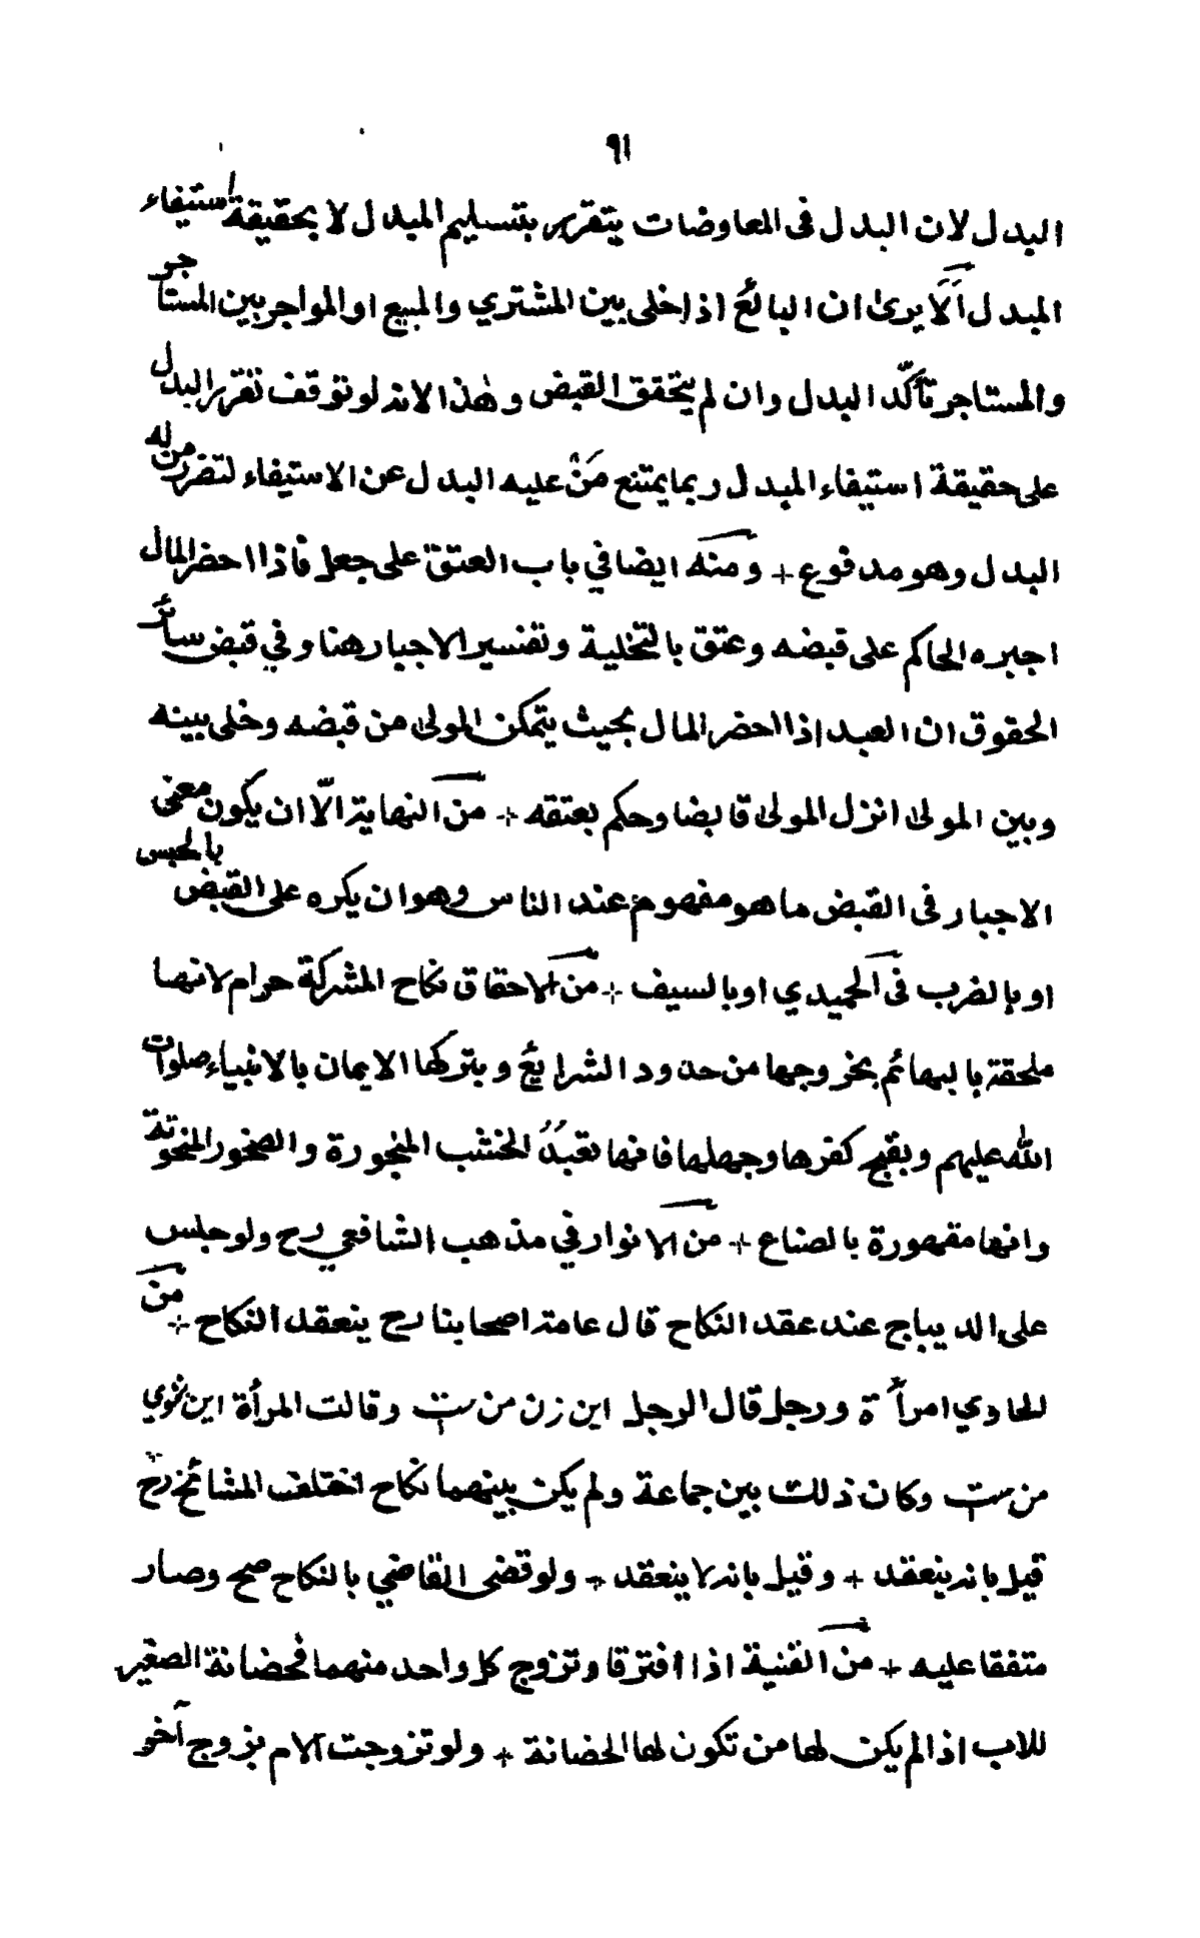 ٩١
البدل لان البدل فى المعاوضات يتقرر بتسليم المبدل لا بحقيقة استيفاء
المبدل اَلَا يرىٰ ان البائع اذا خلى بين المشتري والمبيع او المواجر بين المستاجر
والمستاجر تأكّد البدل وان لم يتحقق القبض وهٰذا لانه لو توقف تقرير البدل
على حقيقة استيفاء المبدل ربما يمتنع مَنْ عليه البدل عن الاستيفاء لتضرر من له
البدل وهو مدفوع + ومنه ايضا في باب العتق على جعل فاذا احضر المال
اجبره الحاكم على قبضه وعتق بالتخلية وتفسير الاجبار هنا وفي قبض سائر
الحقوق ان العبد اذا احضر المال بحيث يتمكن المولىٰ من قبضه وخلى بينه
وبين المولىٰ انزل المولىٰ قابضا وحكم بعتقه + من النهاية الّا ان يكون معنى
الاجبار فى القبض ما هو مفهوم عند الناس وهو ان يكره على القبض بالحبس
او بالضرب فى الحميدي او بالسيف + من الاحقاق نكاح المشركة حرام لانها
ملحقة بالبهائم بخروجها من حدود الشرايع وبتركها الايمان بالانبياء صلوات
الله عليهم وبقبح كفرها وجهلها فانها تعبدُ الخشب المنجورة والصخور المنحوتة
وانها مقهورة بالصناع + من الانوار في مذهب الشافعي رح ولو جلس
على الديباج عند عقد النكاح قال عامة اصحابنا رح ينعقد النكاح + من
الحاوي امرأة ورجل قال الرجل اين زن من ست وقالت المرأة اين شوي
من ست وكان ذلك بين جماعة ولم يكن بينهما نكاح اختلف المشائخ رح
قيل بانه ينعقد + وقيل بانه لا ينعقد + ولو قضى القاضي بالنكاح صح وصار
متفقا عليه + من القنية اذا افترقا وتزوج كل واحد منهما فحضانة الصغير
للاب اذا لم يكن لها من تكون لها الحضانة + ولو تزوجت الام بزوج آخر